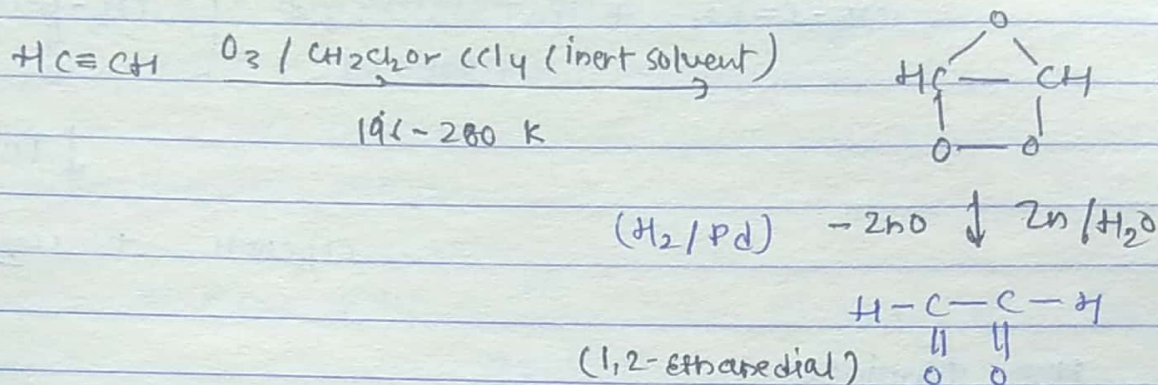 HC≡CH O3 / CH2Cl2 or CCl4 (inert solvent)
196-280 K
O
HC — CH
O — O
(H2/Pd) - ZnO ↓ Zn/H2O
H - C - C - H
O O
(1,2-Ethanedial)